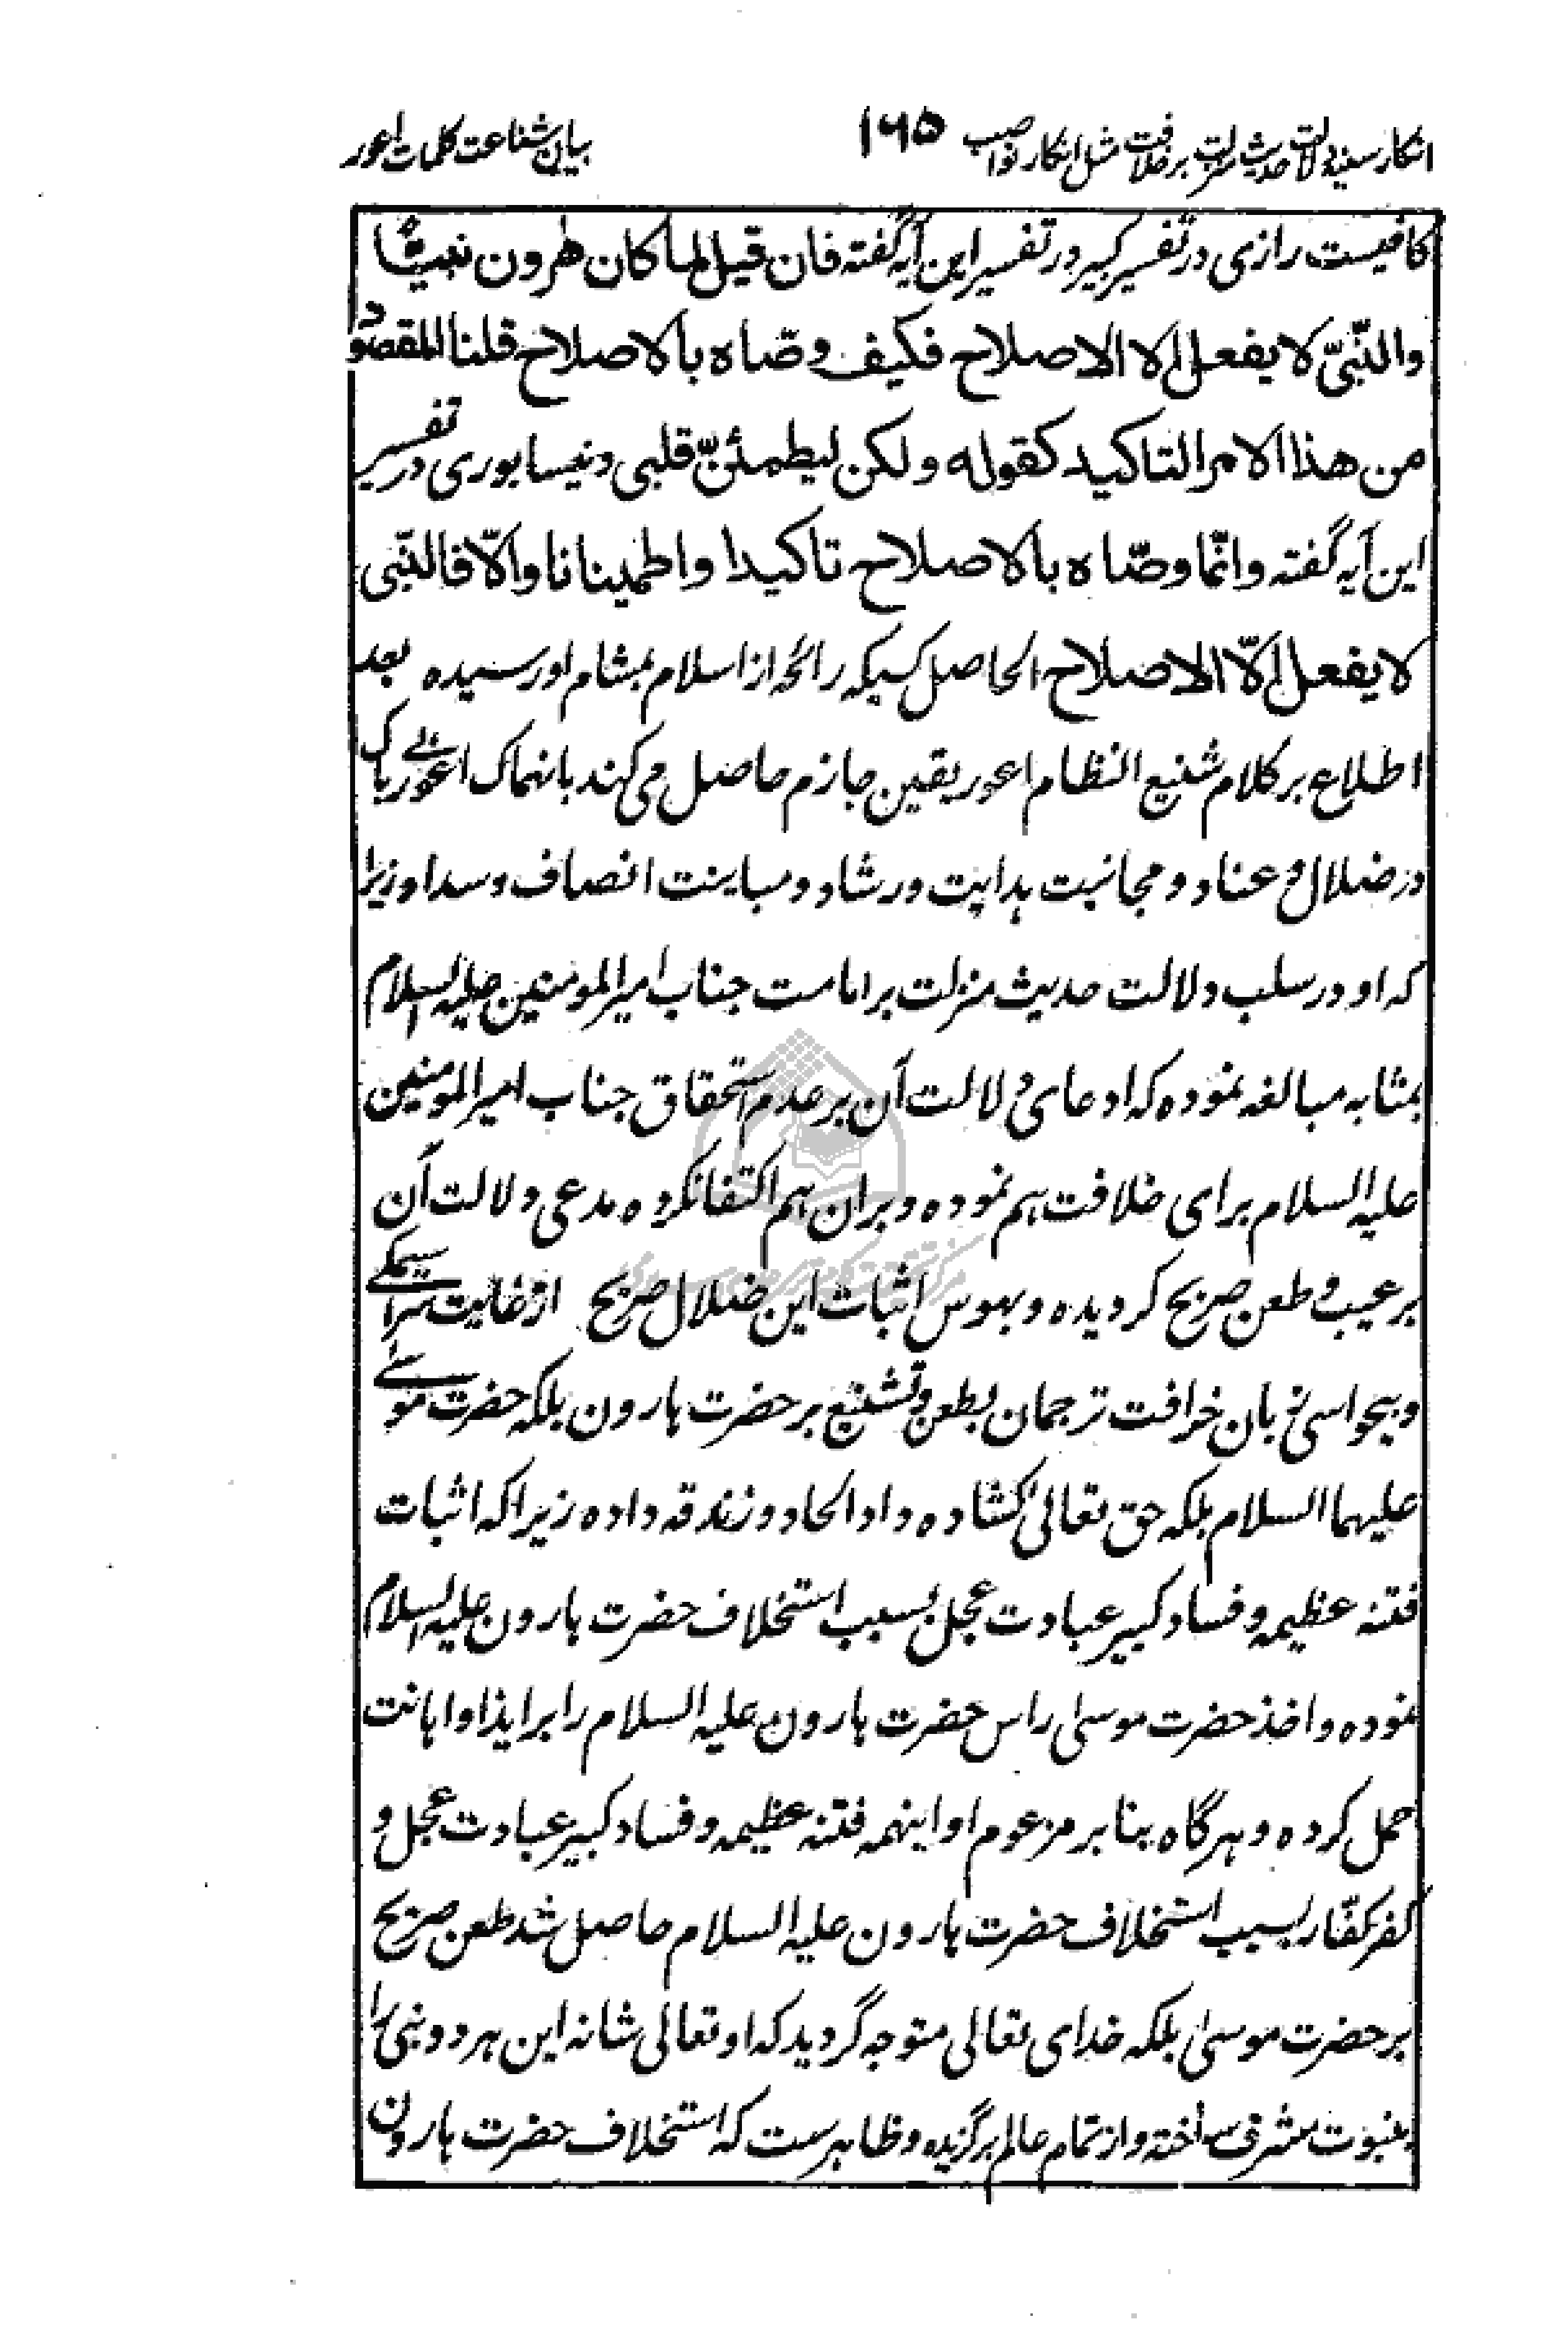 انکار سنیه دلالت حدیث منزلت بر خلافت مثل انکار نواصب ۱۶۵ بیان شناعت کلمات اعور
کافیست رازی در تفسیر کبیر در تفسیر این آیه گفته فان قیل لما کان هرون نبیّا
والنّبیّ لا یفعل الا الاصلاح فکیف وصّاه بالاصلاح قلنا المقصود
من هذا الامر التاکید کقوله ولکن لیطمئنّ قلبی و نیسابوری در تفسیر
این آیه گفته وانّما وصّاه بالاصلاح تاکیدا واطمینانا والّا فالنّبی
لا یفعل الّا الاصلاح الحاصل کسیکه رائحه از اسلام بمشام او رسیده بعد
اطلاع بر کلام شنیع النظام اعور یقین جازم حاصل می کند بانهماک اعور بی باک
در ضلال و عناد و مجانبت هدایت و رشاد و مباینت انصاف و سداد زیرا
که او در سلب دلالت حدیث منزلت بر امامت جناب امیرالمومنین علیه السلام
بمثابه مبالغه نموده که ادعای دلالت آن بر عدم استحقاق جناب امیرالمومنین
علیه السلام برای خلافت هم نموده و بران هم اکتفا نکرده مدعی دلالت آن
بر عیب و طعن صریح گردیده و بهوس اثبات این ضلال صریح از غایت سراسیمگی
و بیحواسی زبان خرافت ترجمان بطعن و تشنیع بر حضرت هارون بلکه حضرت موسی
علیهما السلام بلکه حق تعالی کشاده داد الحاد و زندقه داده زیرا که اثبات
فتنه عظیمه و فساد کبیر عبادت عجل بسبب استخلاف حضرت هارون علیه السلام
نموده و اخذ حضرت موسی راس حضرت هارون علیه السلام را بر ایذا و اهانت
حمل کرده و هرگاه بنا بر مزعوم او اینهمه فتنه عظیمه و فساد کبیر عبادت عجل و
کفر کفّار بسبب استخلاف حضرت هارون علیه السلام حاصل شد طعن صریح
بر حضرت موسی بلکه خدای تعالی متوجه گردید که او تعالی شانه این هر دو نبی را
بنبوت مشرف ساخته و از تمام عالم برگزیده و ظاهرست که استخلاف حضرت هارون